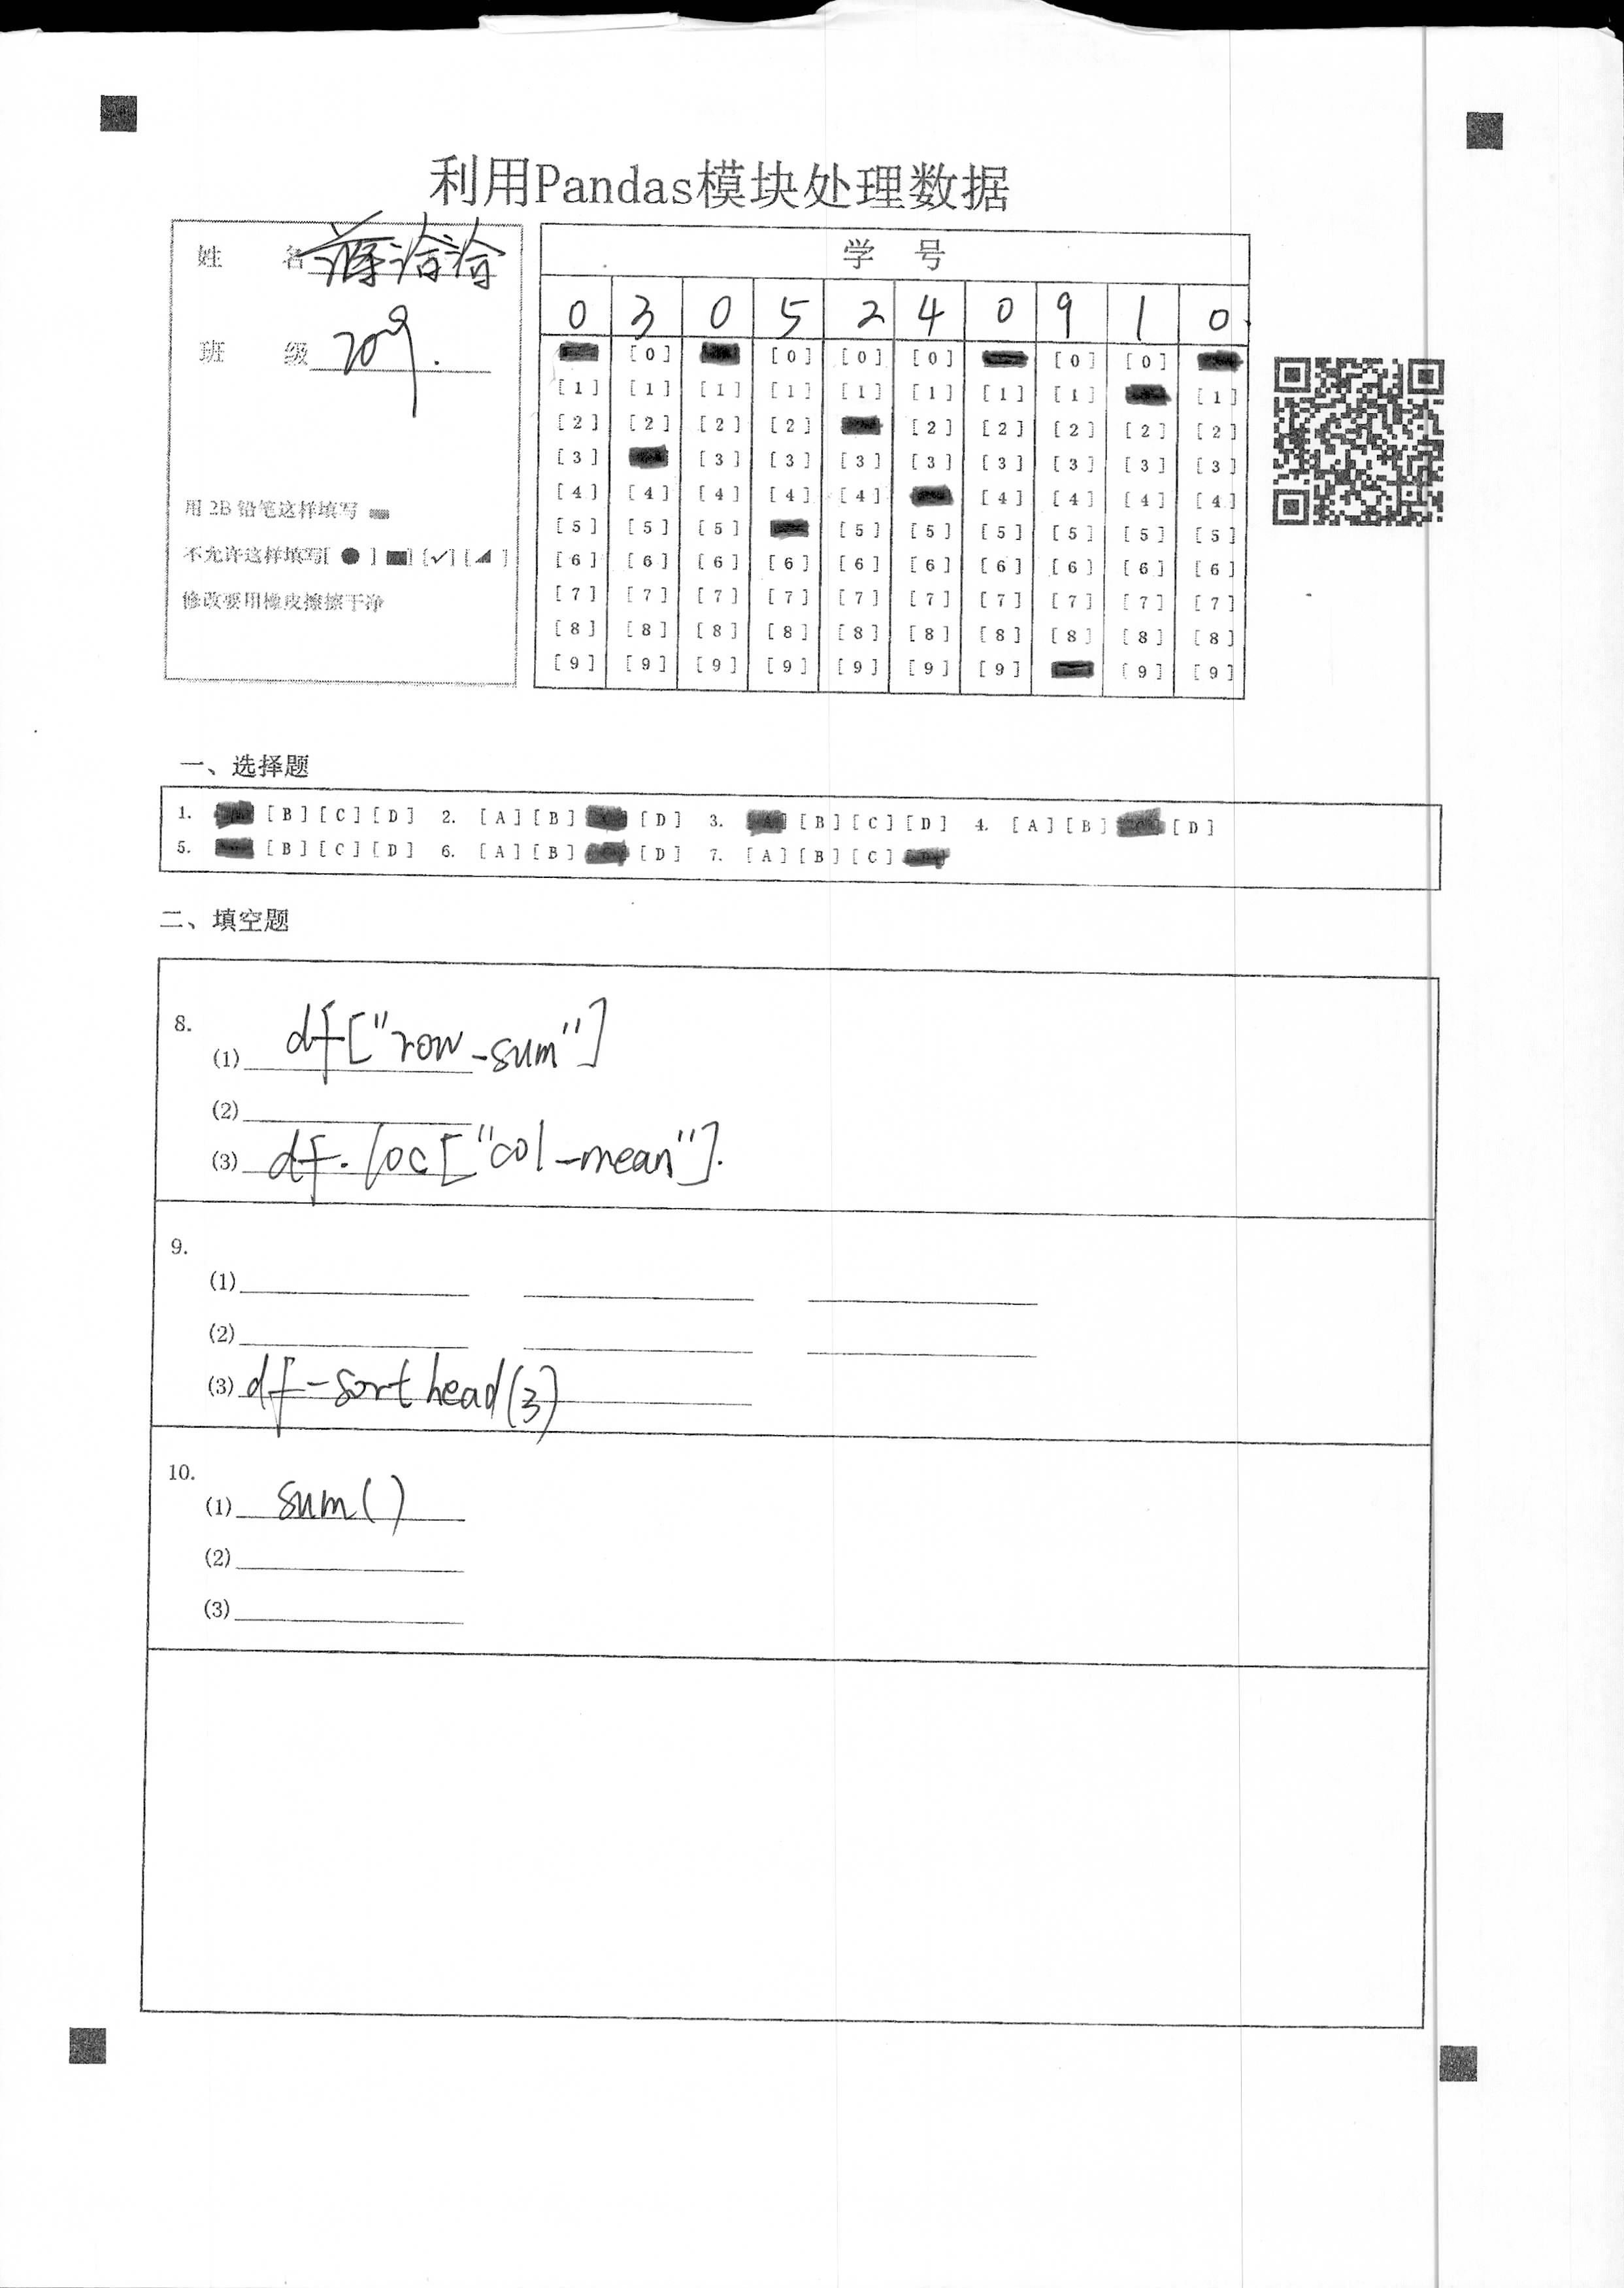 利用Pandas模块处理数据
姓 名 薛洽洽
班 级 209.
用 2B 铅笔这样填写
不允许这样填写[ ● ] ■] [✓] [◢ ]
修改要用橡皮擦擦干净
学 号
0 3 0 5 2 4 0 9 1 0
[0] [0] [0] [0] [0] [0]
[1] [1] [1] [1] [1] [1] [1] [1] [1]
[2] [2] [2] [2] [2] [2] [2] [2] [2]
[3] [3] [3] [3] [3] [3] [3] [3] [3]
[4] [4] [4] [4] [4] [4] [4] [4] [4]
[5] [5] [5] [5] [5] [5] [5] [5] [5]
[6] [6] [6] [6] [6] [6] [6] [6] [6] [6]
[7] [7] [7] [7] [7] [7] [7] [7] [7] [7]
[8] [8] [8] [8] [8] [8] [8] [8] [8] [8]
[9] [9] [9] [9] [9] [9] [9] [9] [9]
一、选择题
1. [B] [C] [D] 2. [A] [B] [D] 3. [A] [B] [C] [D] 4. [A] [B] [D]
5. [B] [C] [D] 6. [A] [B] [D] 7. [A] [B] [C]
二、填空题
8.
(1) df["row-sum"]
(2)
(3) df.loc["col-mean"].
9.
(1)
(2)
(3) df-sort head(3)
10.
(1) sum()
(2)
(3)